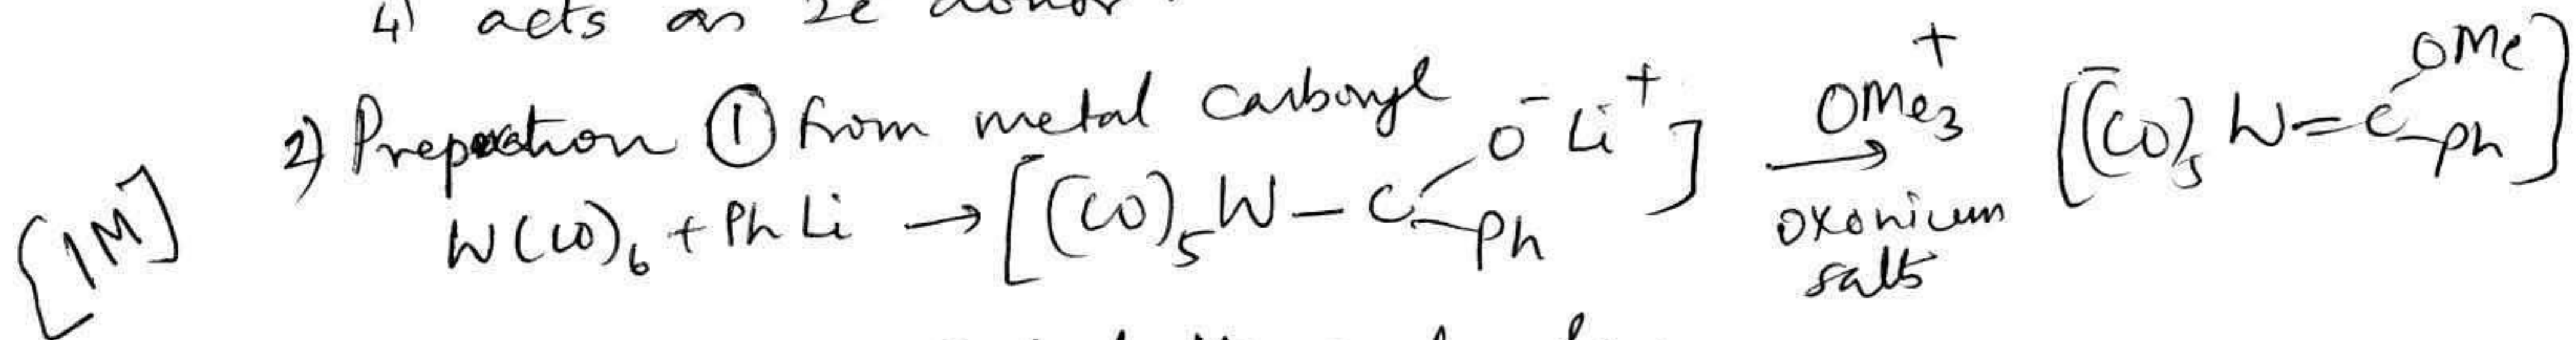 4) acts as 2e donor
2) Preparation ① from metal carbonyl
[1M]
W(CO)₆ + PhLi → [(CO)₅W–C(O⁻Li⁺)–Ph] OMe₃⁺ → oxonium salts [(CO)₅W=C(OMe)–Ph]